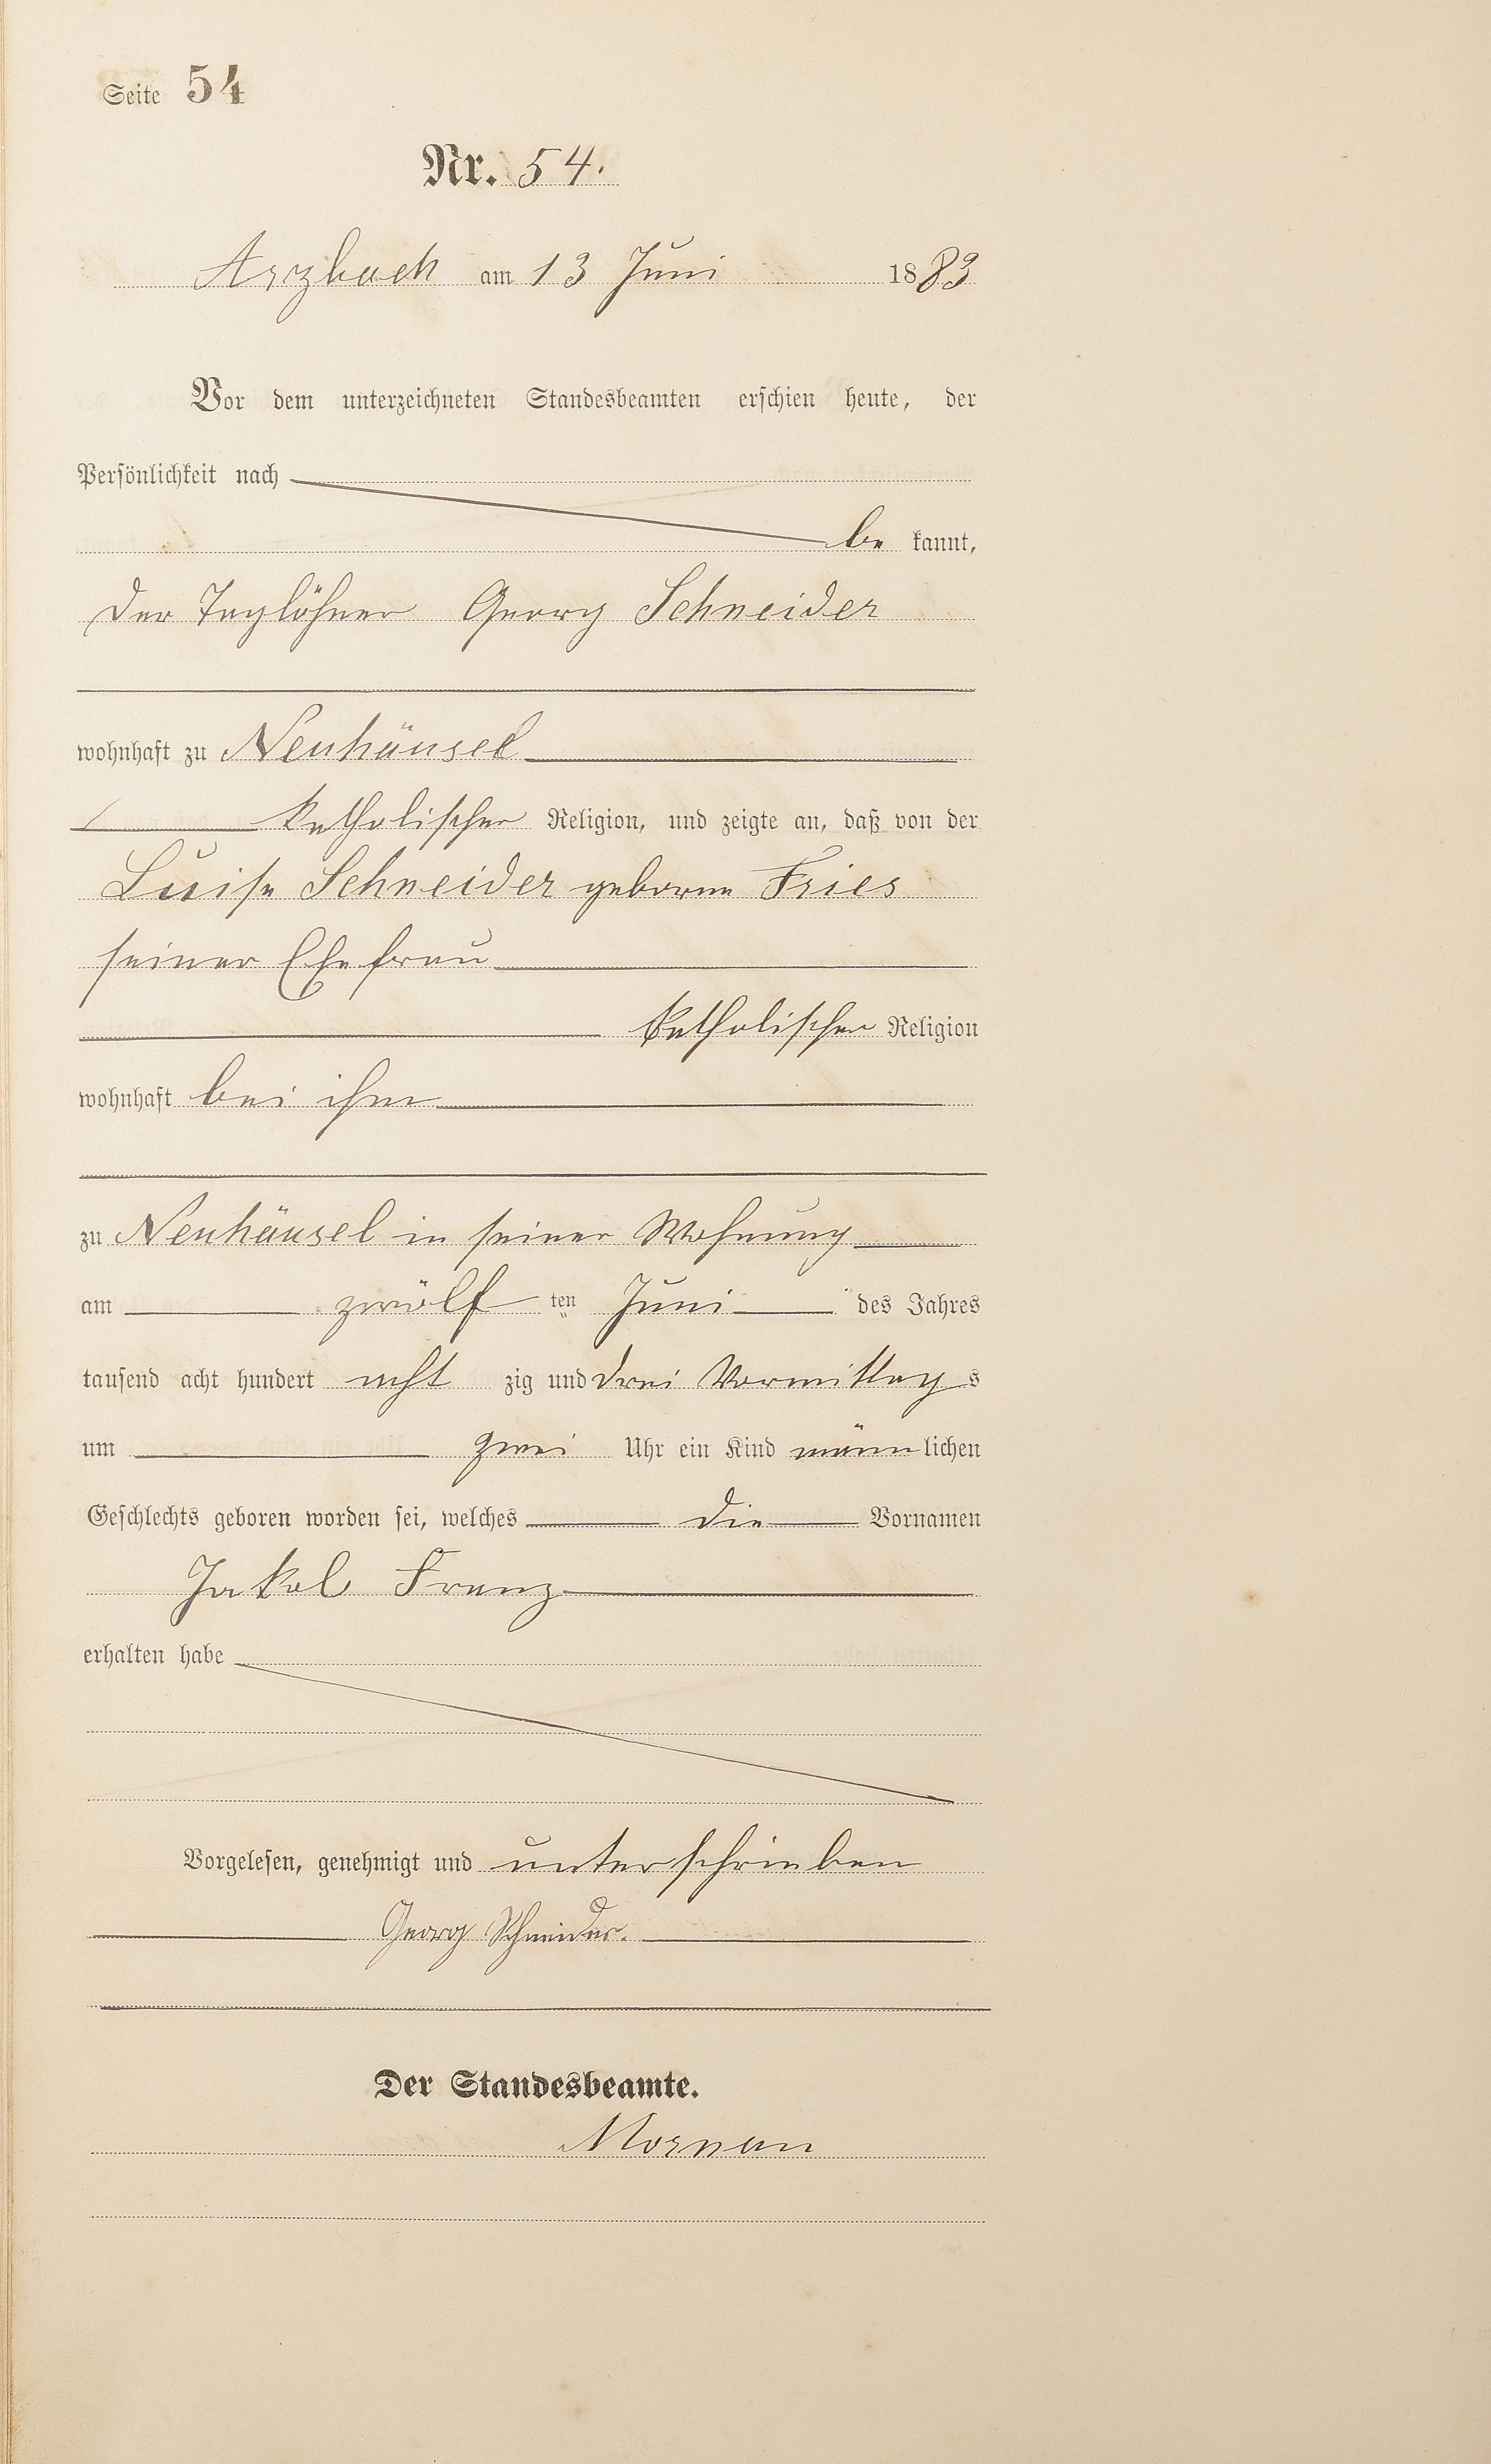 Seite 54
Nr. 54.
Arzbach am 13 Juni 1883
Vor dem unterzeichneten Standesbeamten erschien heute, der
Persönlichkeit nach
be kannt,
der Taglöhner Georg Schneider
wohnhaft zu Neuhäusel
katholischer Religion, und zeigte an, daß von der
Luise Schneider geborne Fries
seiner Ehefrau
katholischer Religion
wohnhaft bei ihm
zu Neuhäusel in seiner Wohnung
am zwölf ten Juni des Jahres
tausend acht hundert acht zig und drei Vormittags
um zwei Uhr ein Kind männlichen
Geschlechts geboren worden sei, welches die Vornamen
Jakob Franz
erhalten habe
Vorgelesen, genehmigt und unterschrieben
Georg Schneider.
Der Standesbeamte.